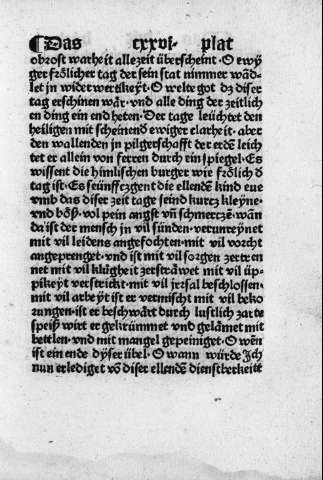 ¶Das cxxvi· plat
obrost warheit allezeit überscheint · O ewy
ger frölicher tag der sein stat nimmer wād-
let in widerwertikeyt · O welt got dz diser
tag erschinen wär · vnd alle ding der zeitlich
en ding ein end heten · Der tage leüchtet den
heiligen mit scheinend ewiger clarheit · aber
den wallenden in pilgerschafft der erdē leich
tet er allein von ferren durch ein spiegel · Es
wissent die himlischen burger wie frölich d
tag ist · Es seünfftzgent die ellendē kind eue
vmb das diser zeit tage seind kurcz kleyne ·
vnd böß · vol pein angst vñ schmerczē · wān
da ist der mensch jn vil sünden · verunreynet
mit vil leidens angefochten · mit vil vorcht
angeprenget · vnd ist mit vil sorgen zertren
net mit vil klůgheit zerströwet mit vil üp-
pikeyt verstrickt · mit vil jrrsal beschlossen ·
mit vil arbeyt ist er vermischt mit vil beko
rungen · ist er beschwärt durch lustlich zarte
speiß wirt er gekrümmet vnd gelämet mit
bettlen · vnd mit mangel gepeiniget · O wēn
ist ein ende dyser übel · O wann würde Jch
nun erlediget vō diser ellendē dienstberkeitt